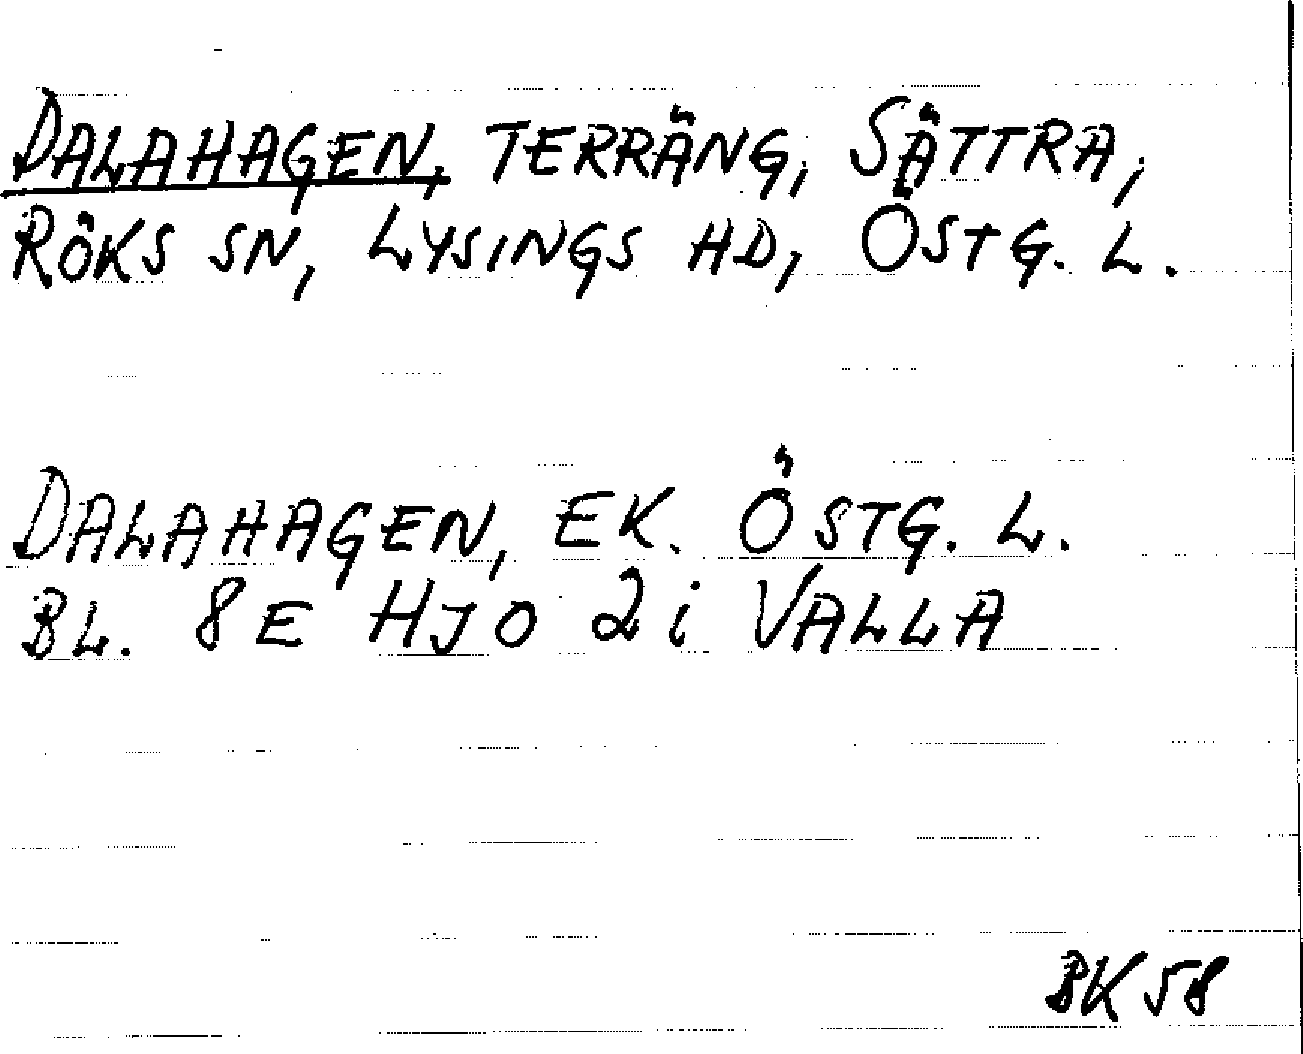 DALAHAGEN, TERRÄNG, SÄTTRA,
RÖKS SN, LYSINGS HD, ÖSTG. L.
DALAHAGEN, EK. ÖSTG. L.
BL. 8E HJO 2i VALLA
BK 58